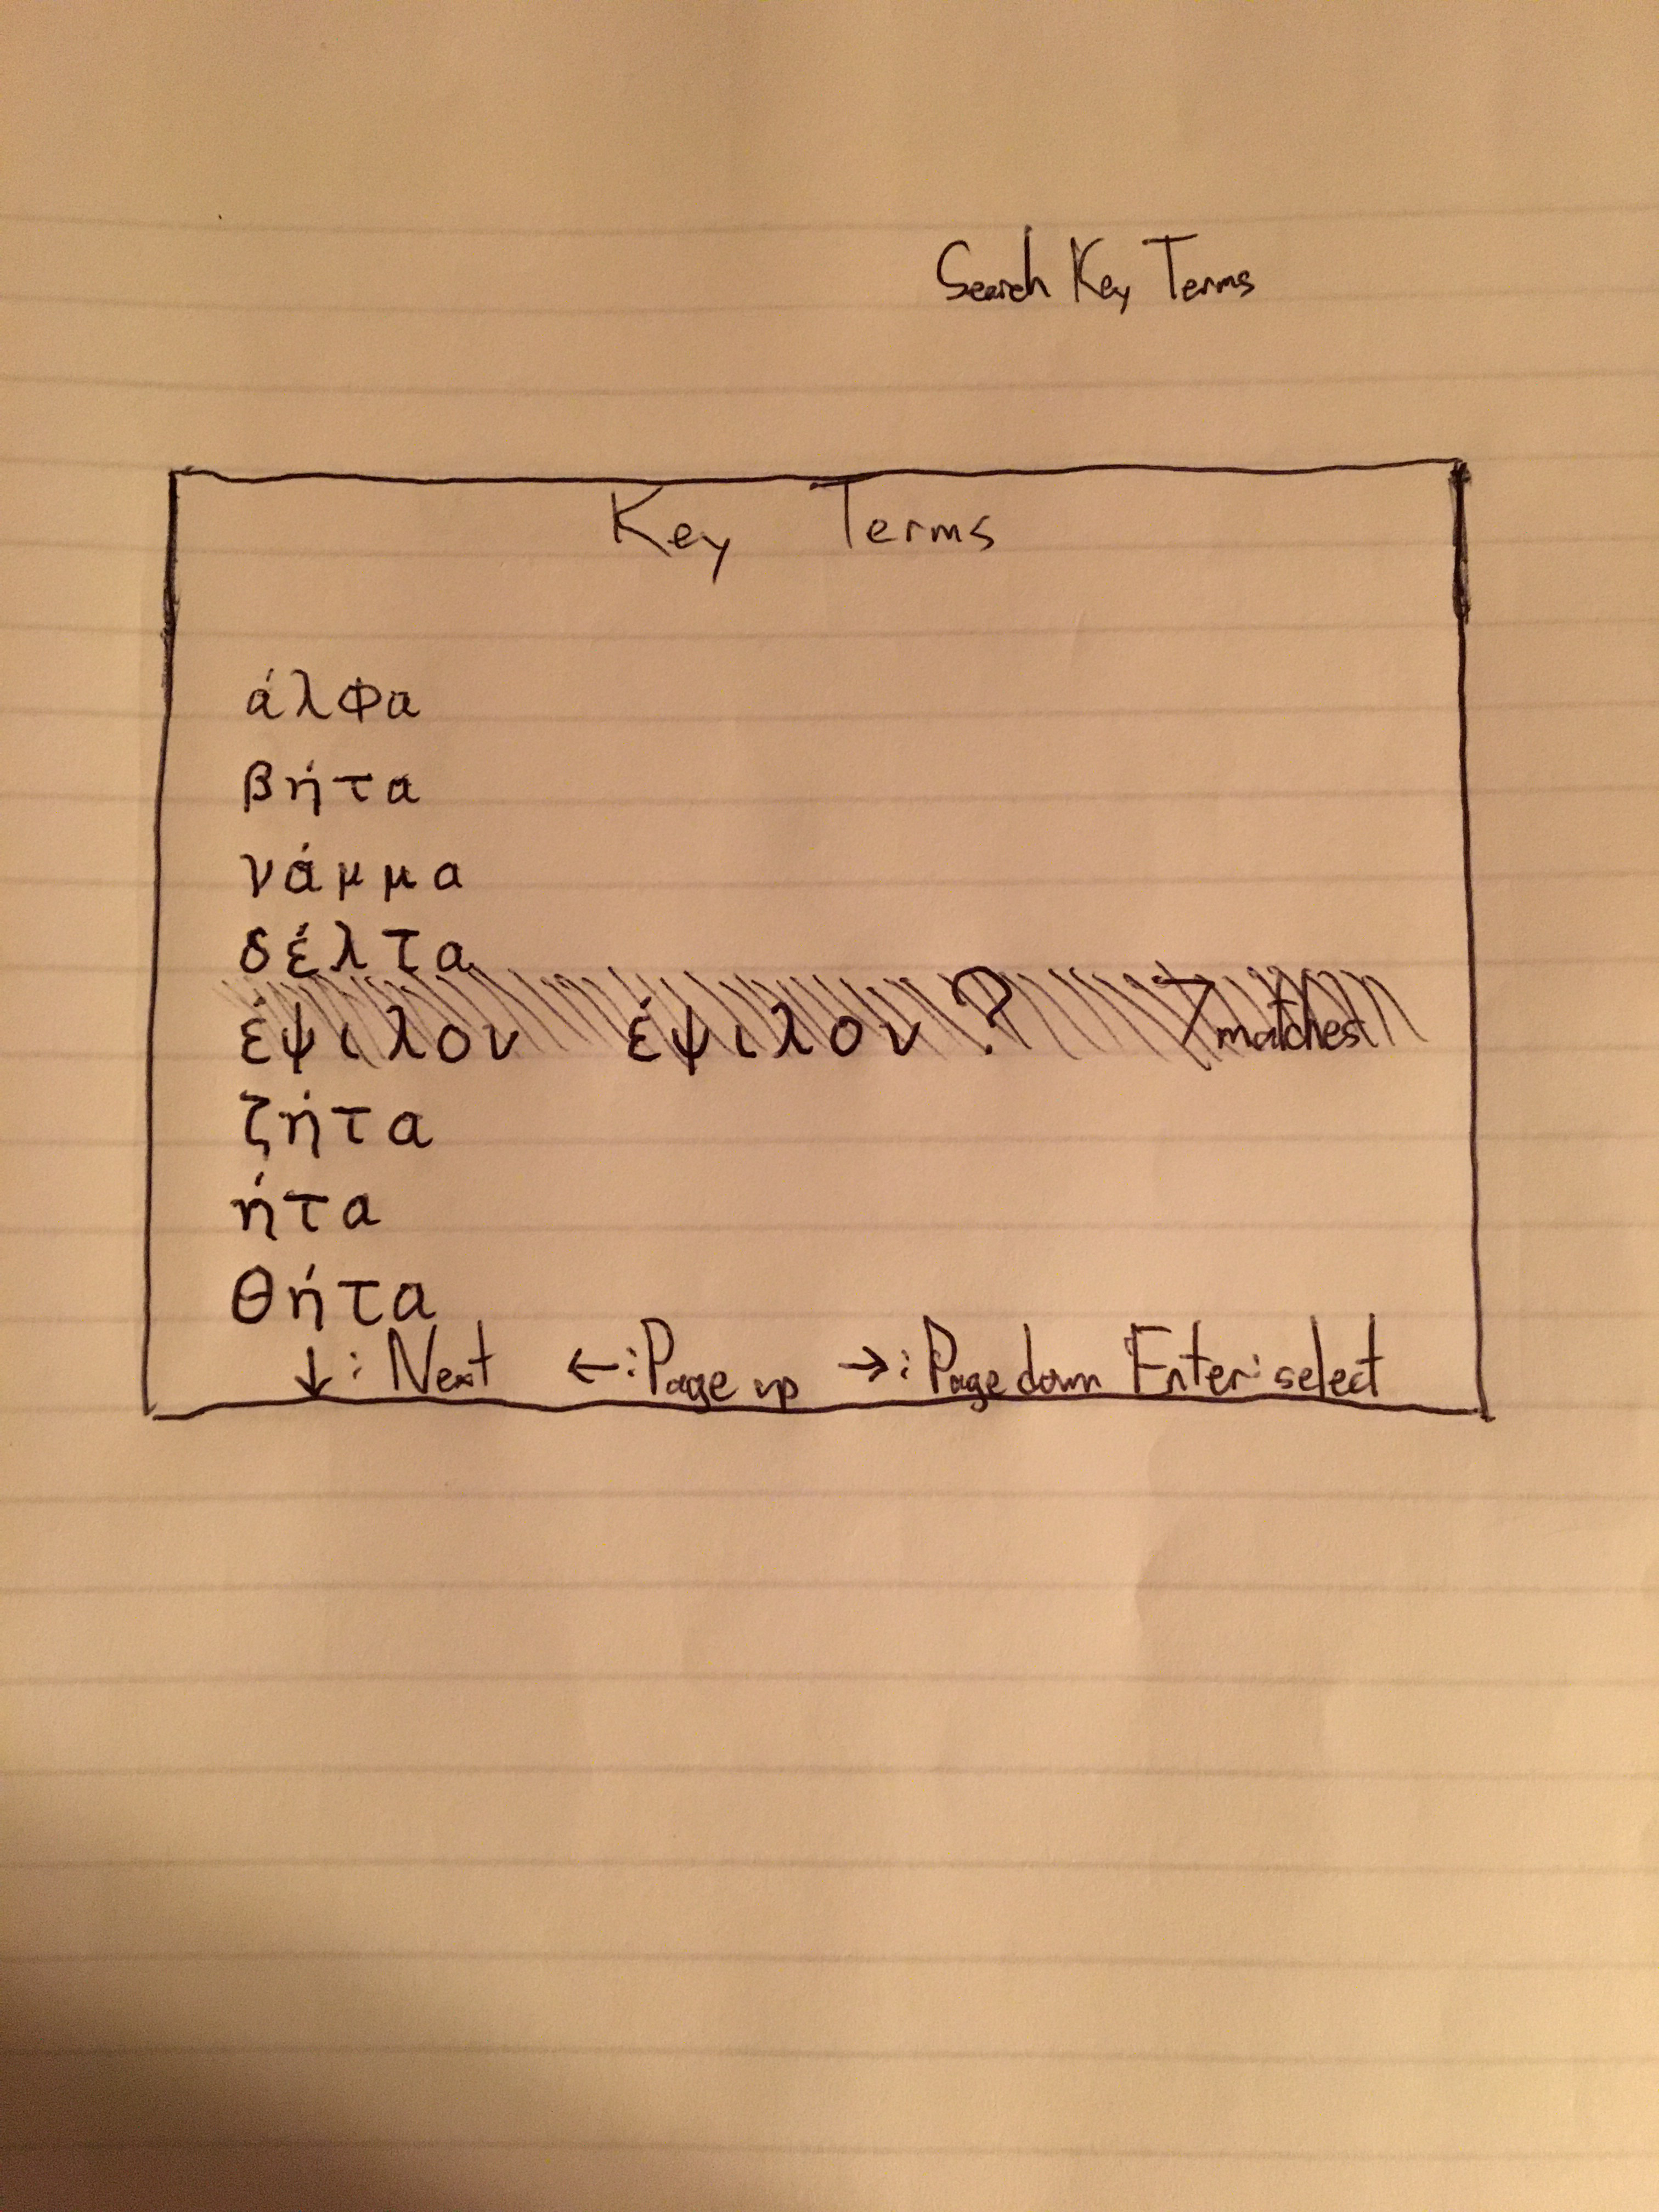 Search Key Terms
Key Terms
άλφα
βήτα
νάμμα
δέλτα
έψιλον έψιλον? 7 matches
ζήτα
ήτα
θήτα
↓: Next ←: Page up →: Page down Enter: select